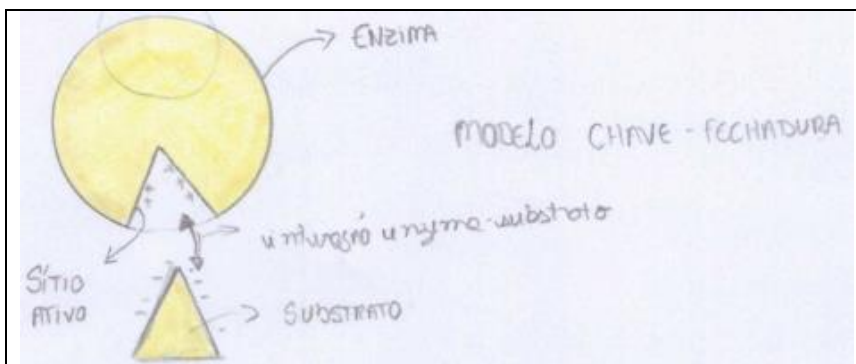 ENZIMA
MODELO CHAVE-FECHADURA
interação enzima-substrato
SÍTIO
ATIVO
SUBSTRATO